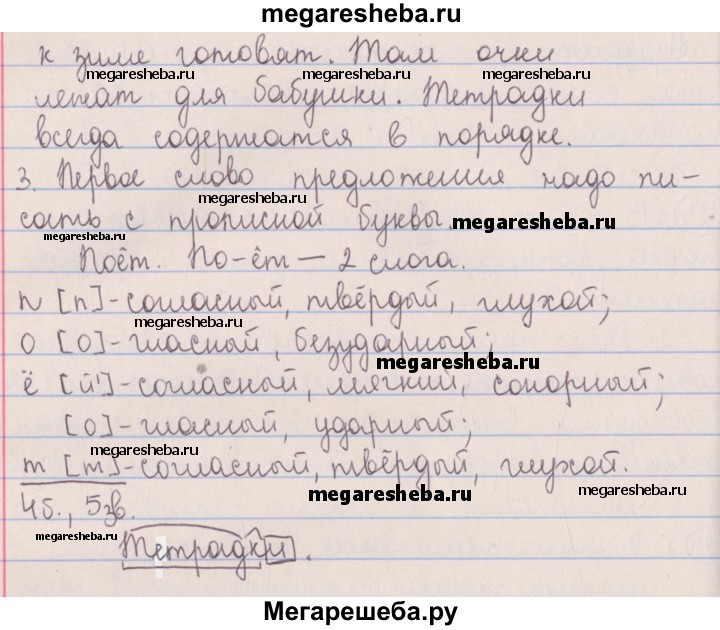 megaresheba.ru
к зиме готовят. Там очки
megaresheba.ru megaresheba.ru megaresheba.ru
лежат для бабушки. Тетрадки
всегда содержатся в порядке.
3. Первое слово предложения надо пи-
megaresheba.ru
сать с прописной буквы. megaresheba.ru
megaresheba.ru
Поёт. По-ёт — 2 слога.
п [п]-согласный, твёрдый, глухой;
megaresheba.ru
о [о]-гласный, безударный;
megaresheba.ru
ё [й']-согласный, мягкий, сонорный;
[о]-гласный, ударный;
megaresheba.ru
т [т]-согласный, твёрдый, глухой.
megaresheba.ru megaresheba.ru
4б., 5зв.
megaresheba.ru
Тетрадки.
Мегарешеба.ру